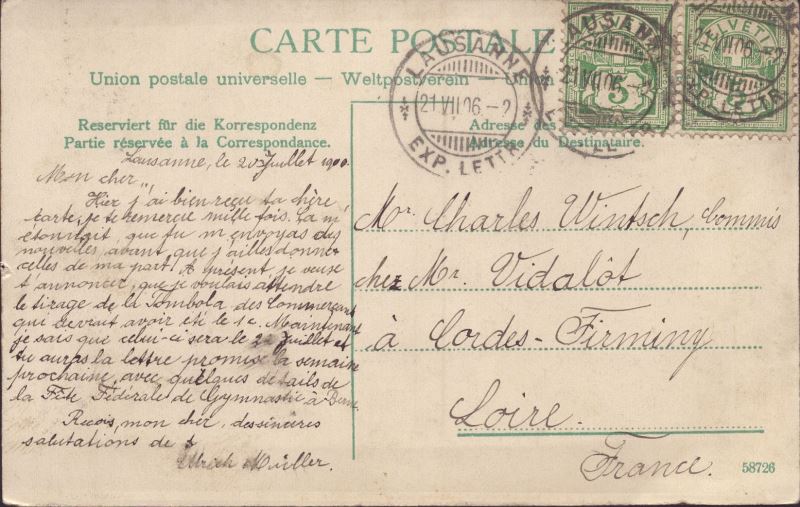 CARTE POSTALE
Union postale universelle — Weltpostverein — Union
LAUSANNE
21 VII 06 - 2
EXP. LETTR.
LAUSANNE
21 VII 06
HELVETIA
5
HELVETIA
21 VII 06
EXP. LETTR.
Reserviert für die Korrespondenz
Partie réservée à la Correspondance.
Adresse des
Adresse du Destinataire.
Lausanne, le 20 Juillet 1906.
Mon cher,
Hier j'ai bien reçu ta chère
carte, je te remercie mille fois. Ça m'
étonnait que tu m'envoyas des
nouvelles avant que j'ailles donner
celles de ma part. A présent, je veux
t'annoncer, que je voulais attendre
le tirage de la Tombola des Commerçant
qui devrait avoir été le 1e. Maintenant
je sais que celui-ci sera le 22 Juillet et
tu auras la lettre promise la semaine
prochaine, avec quelques détails de
la Fête Fédérale de Gymnastic à Berne.
Reçois, mon cher, des sincères
salutations de
Ulrich Müller.
Mr. Charles Wintsch, Commis
chez Mr. Vidalôt
à Cordes-Firminy
Loire.
France.
58726